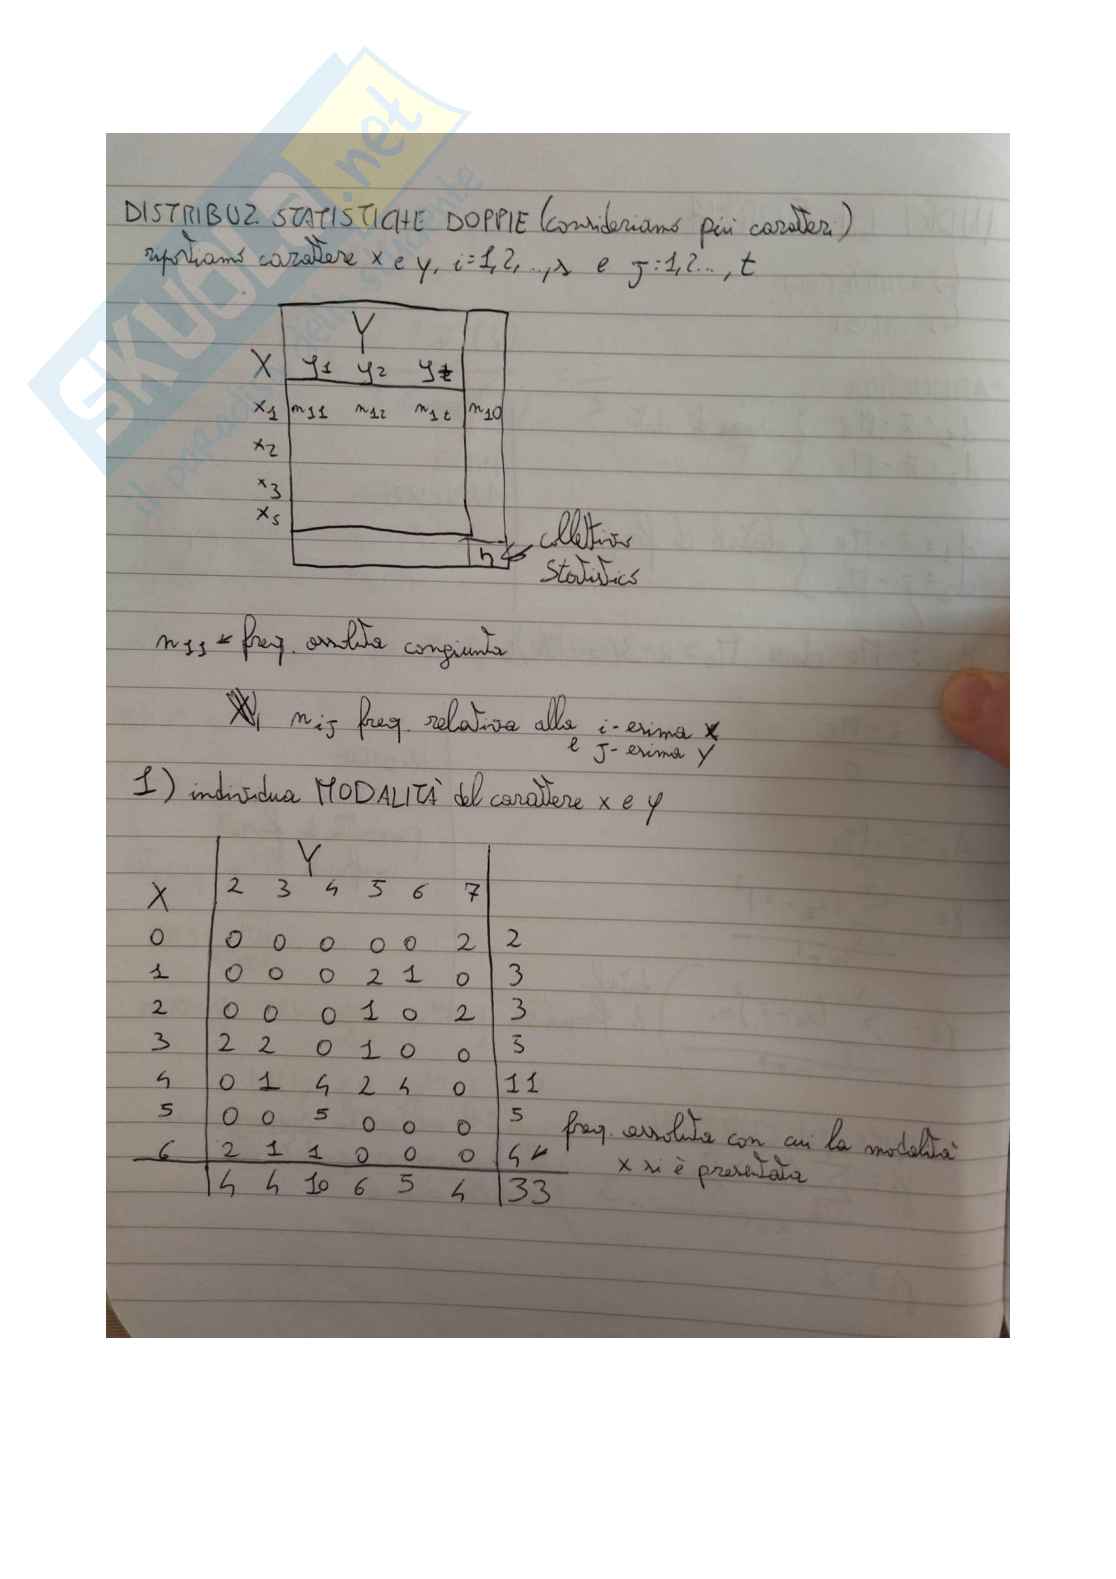 SKUOLA.net
il paradiso dello studente
DISTRIBUZ. STATISTICHE DOPPIE (consideriamo più caratteri)
riportiamo carattere x e y, i=1,2,..,s e J=1,2..., t
Y
X y1 y2 yt
x1 n11 n12 n1t n10
x2
x3
xs
n collettivo
statistico
n11 freq. assoluta congiunta
nij freq. relativa alla i-esima x
e J-esima y
1) individua MODALITÀ del carattere x e y
Y
X 2 3 4 5 6 7
0 0 0 0 0 0 2 2
1 0 0 0 2 1 0 3
2 0 0 0 1 0 2 3
3 2 2 0 1 0 0 5
4 0 1 4 2 4 0 11
5 0 0 5 0 0 0 5
6 2 1 1 0 0 0 4 freq. assoluta con cui la modalità
x si è presentata
4 4 10 6 5 4 33